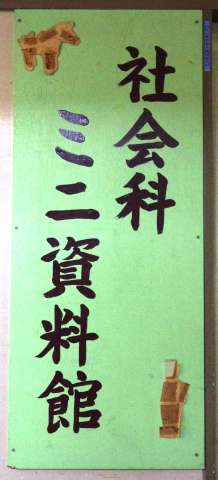 社会科
ミニ資料館